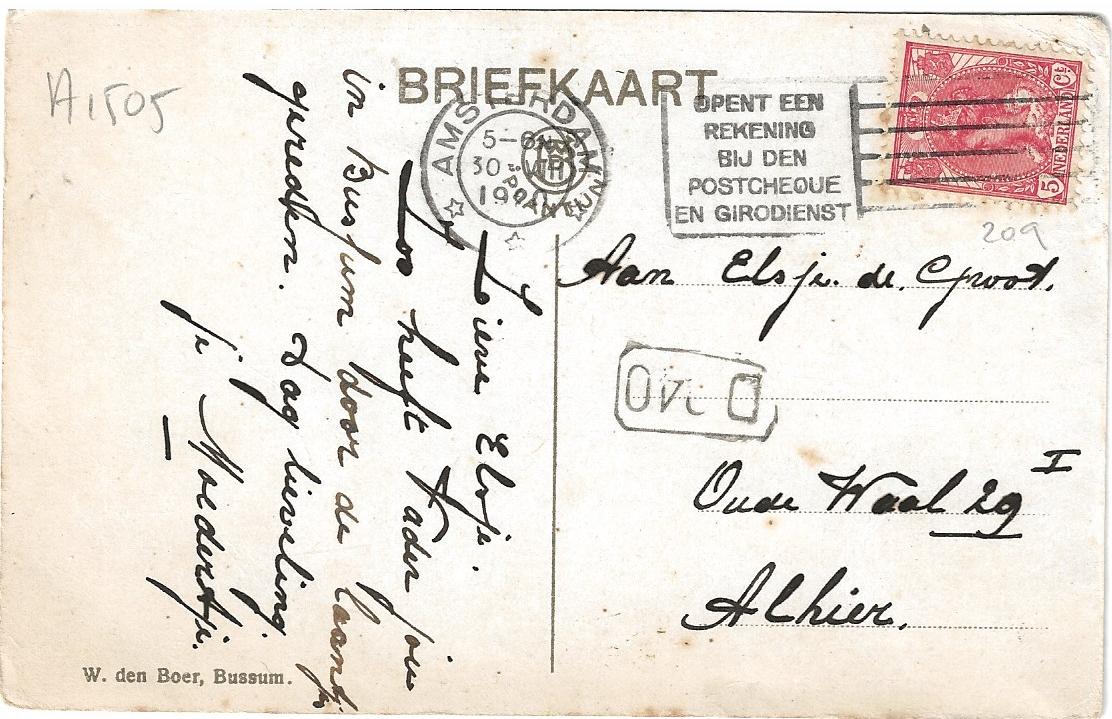 BRIEFKAART
A1505
AMSTERDAM
5-6N
30 VIII
OPENT EEN
REKENING
BIJ DEN
POSTCHEQUE
EN GIRODIENST
5 NEDERLAND Ct
209
Aan Elsje de Groot.
Oude Waal 29 I
Alhier.
Lieve Elsje
Zoo heeft Vader jou
in Bussum door de laantje
gereden. Dag lieveling
je Moedertje.
W. den Boer, Bussum.